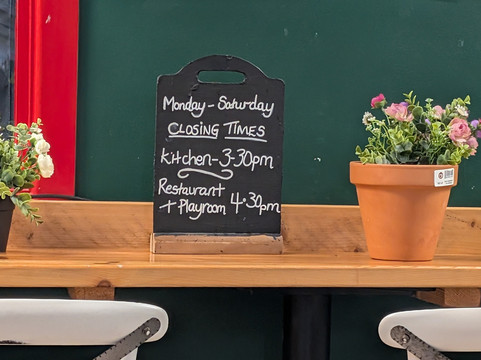 Monday - Saturday
CLOSING TIMES
Kitchen - 3-30pm
Restaurant
+ Playroom 4-30pm